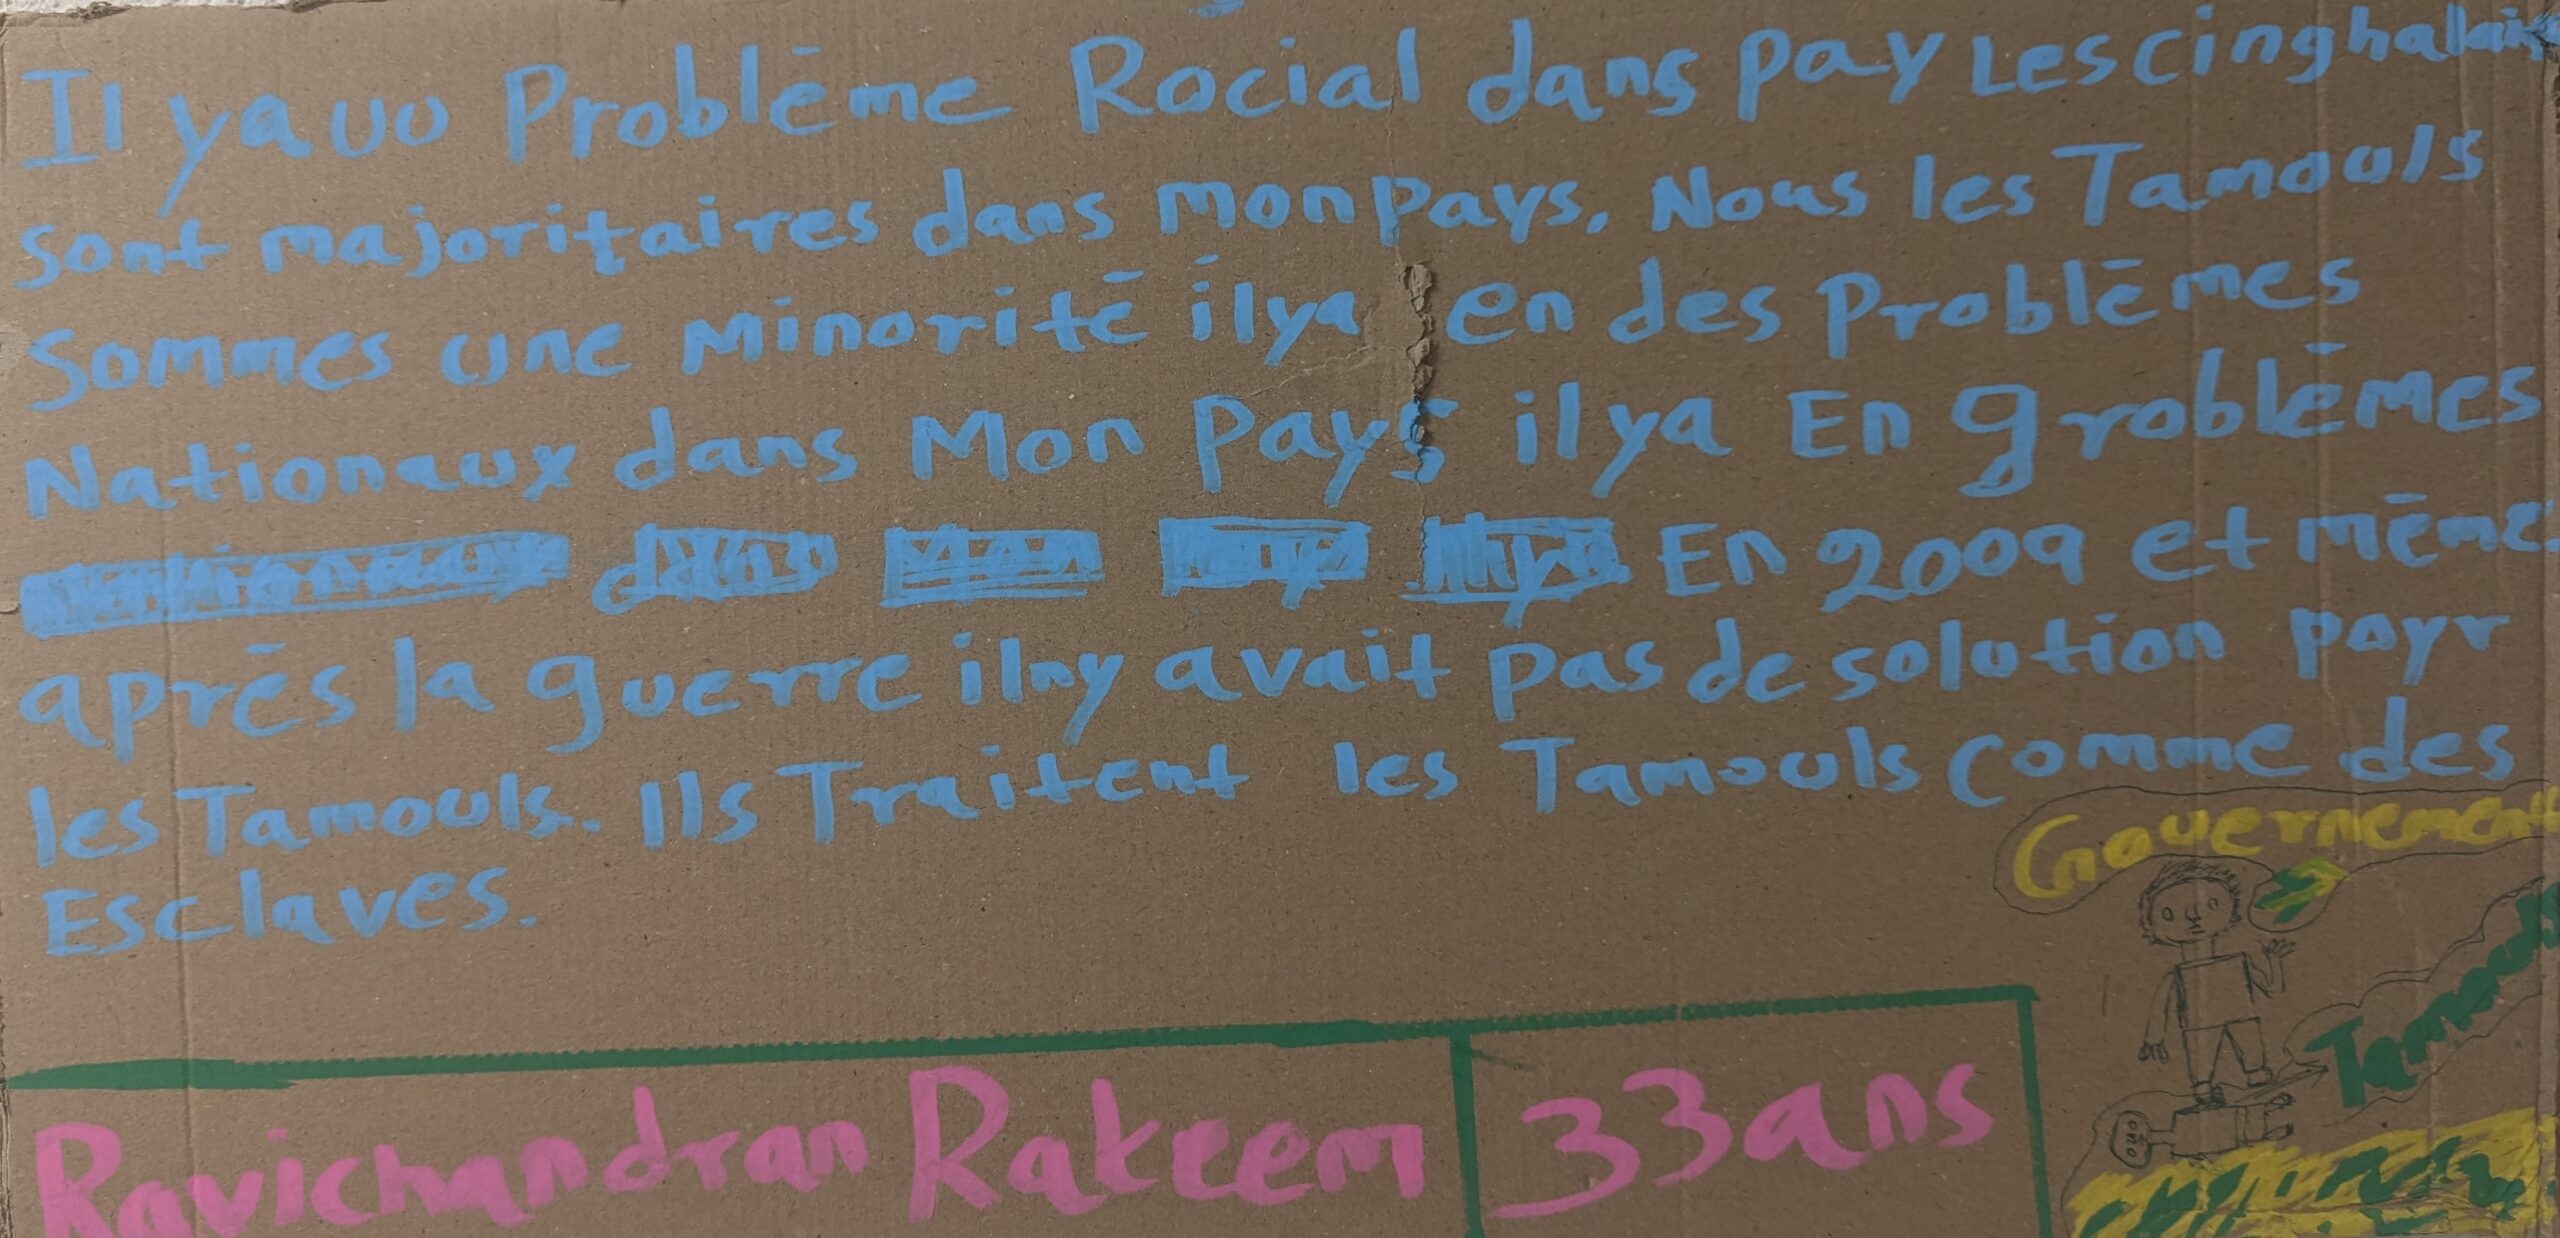 Il ya uu Problēme Rocial dans pay Les cinghalais
sont majoritaires dans mon pays. Nous les Tamouls
sommes une Minoritē il ya en des Problēmes
Nationaux dans Mon Pays il ya En groblēmes
En 2009 et mēme
aprēs la guerre ilny avait pas de solution poyr
les Tamouls. Ils Traitent les Tamouls comme des
Esclaves.
Gouvernement
Tamouls
Ravichandran Rakeem 33ans